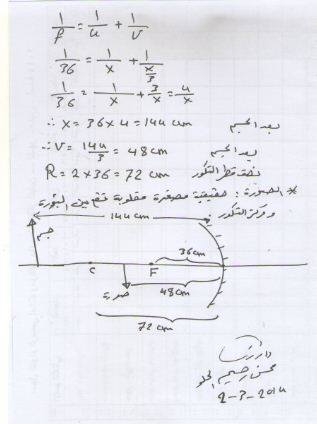 1/f = 1/u + 1/v
1/36 = 1/x + 1/(x/3)
1/36 = 1/x + 3/x = 4/x
∴ x = 36 x 4 = 144 cm بعد الجسم
∴ v = 144/3 = 48 cm
R = 2 x 36 = 72 cm نصف قطر التكور
* الصورة: حقيقية مصغرة مقلوبة تقع بين البؤرة
ومركز التكور 144 cm
جسم 36cm
C F
صورة 48cm
72 cm
محسن رحيم
2-3-2014